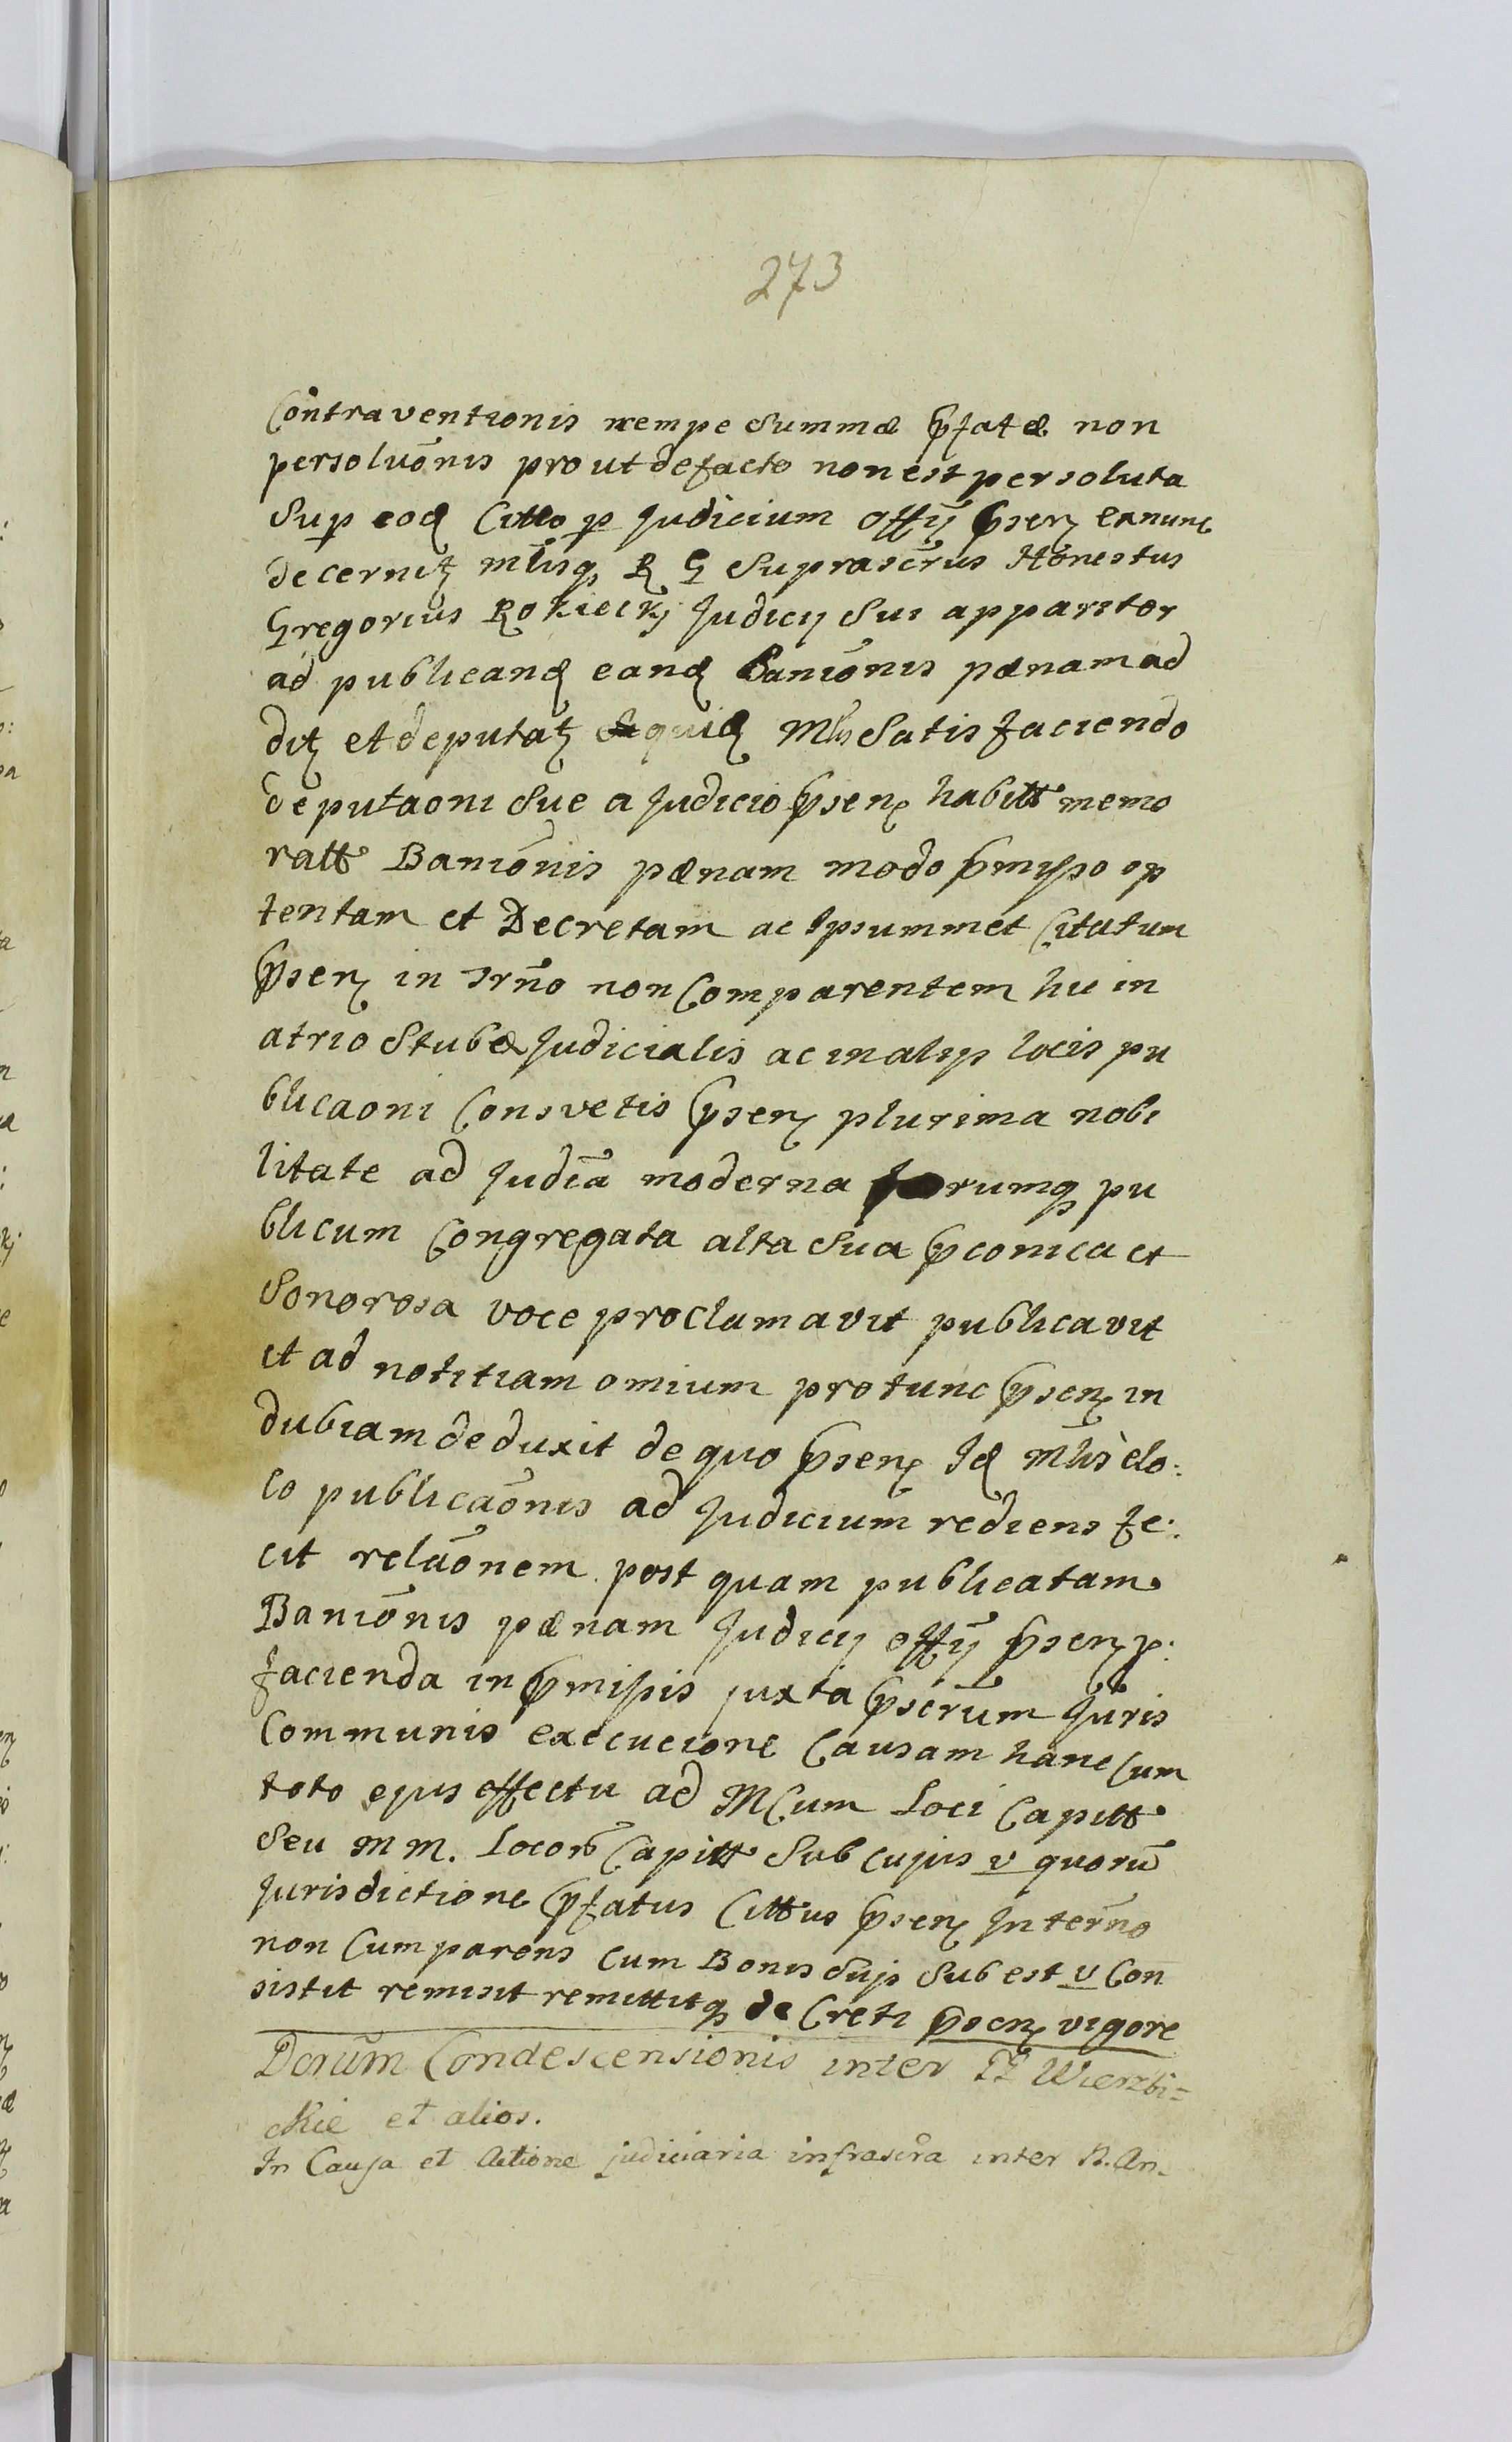 273
Contraventionis nempe Summæ p̄fatæ non
persoluōnis prout defacto non est persoluta
Sup eod Citto p Judicium offÿ p̄sen exnunc
decernit mlisq R G Suprascr̄us Honestus
Gregorius Rokicckj Judicij Sui apparitor
ad publicand eand Baniōnis pænam ad
dit et deputat quid Mlis Satisfaciendo
deputaoni Sue a Judicio p̄sen habitt memo
ratt Baniōnis pænam modo p̄mysso op
tentam et Decretam ac Ipsummet Citatum
p̄sen in Trn̄o non Comparentem hic in
atrio Stubæ Judicialis ac in alijs locis pu
blicaoni Consvetis p̄sen plurima nobi
litate ad Judīa moderna forumq pu
blicum Congregata alta Sua p̄conica et
Sonorosa voce proclamavit publicavit
et ad notitiam omium protunc p̄sen in
dubiam deduxit de quo p̄sen Id mlis èlo:
co publicaōnis ad Judicium rediens fe:
cit relaōnem post quam publicatam
Baniōnis pænam Judicij offÿ p̄sen p:
facienda in p̄missis juxta p̄scr̄um Juris
Communis execucione Causam hanc Cum
toto ejus effectu ad MCum Loci Capitt
Seu M M. Locor̄ Capitt Sub cujus v quorū
Jurisdictione p̄fatus Cittus p̄sen Inter̄no
non Cumparens cum Bonis Suis Sub est v Con
sistit remisit remittitq de Creti p̄sen vigore
Dec̄rum Condescensionis inter Wierzbi=
ckie et alios.
In Causa et Actione judiciaria infrascr̄a inter N. An=